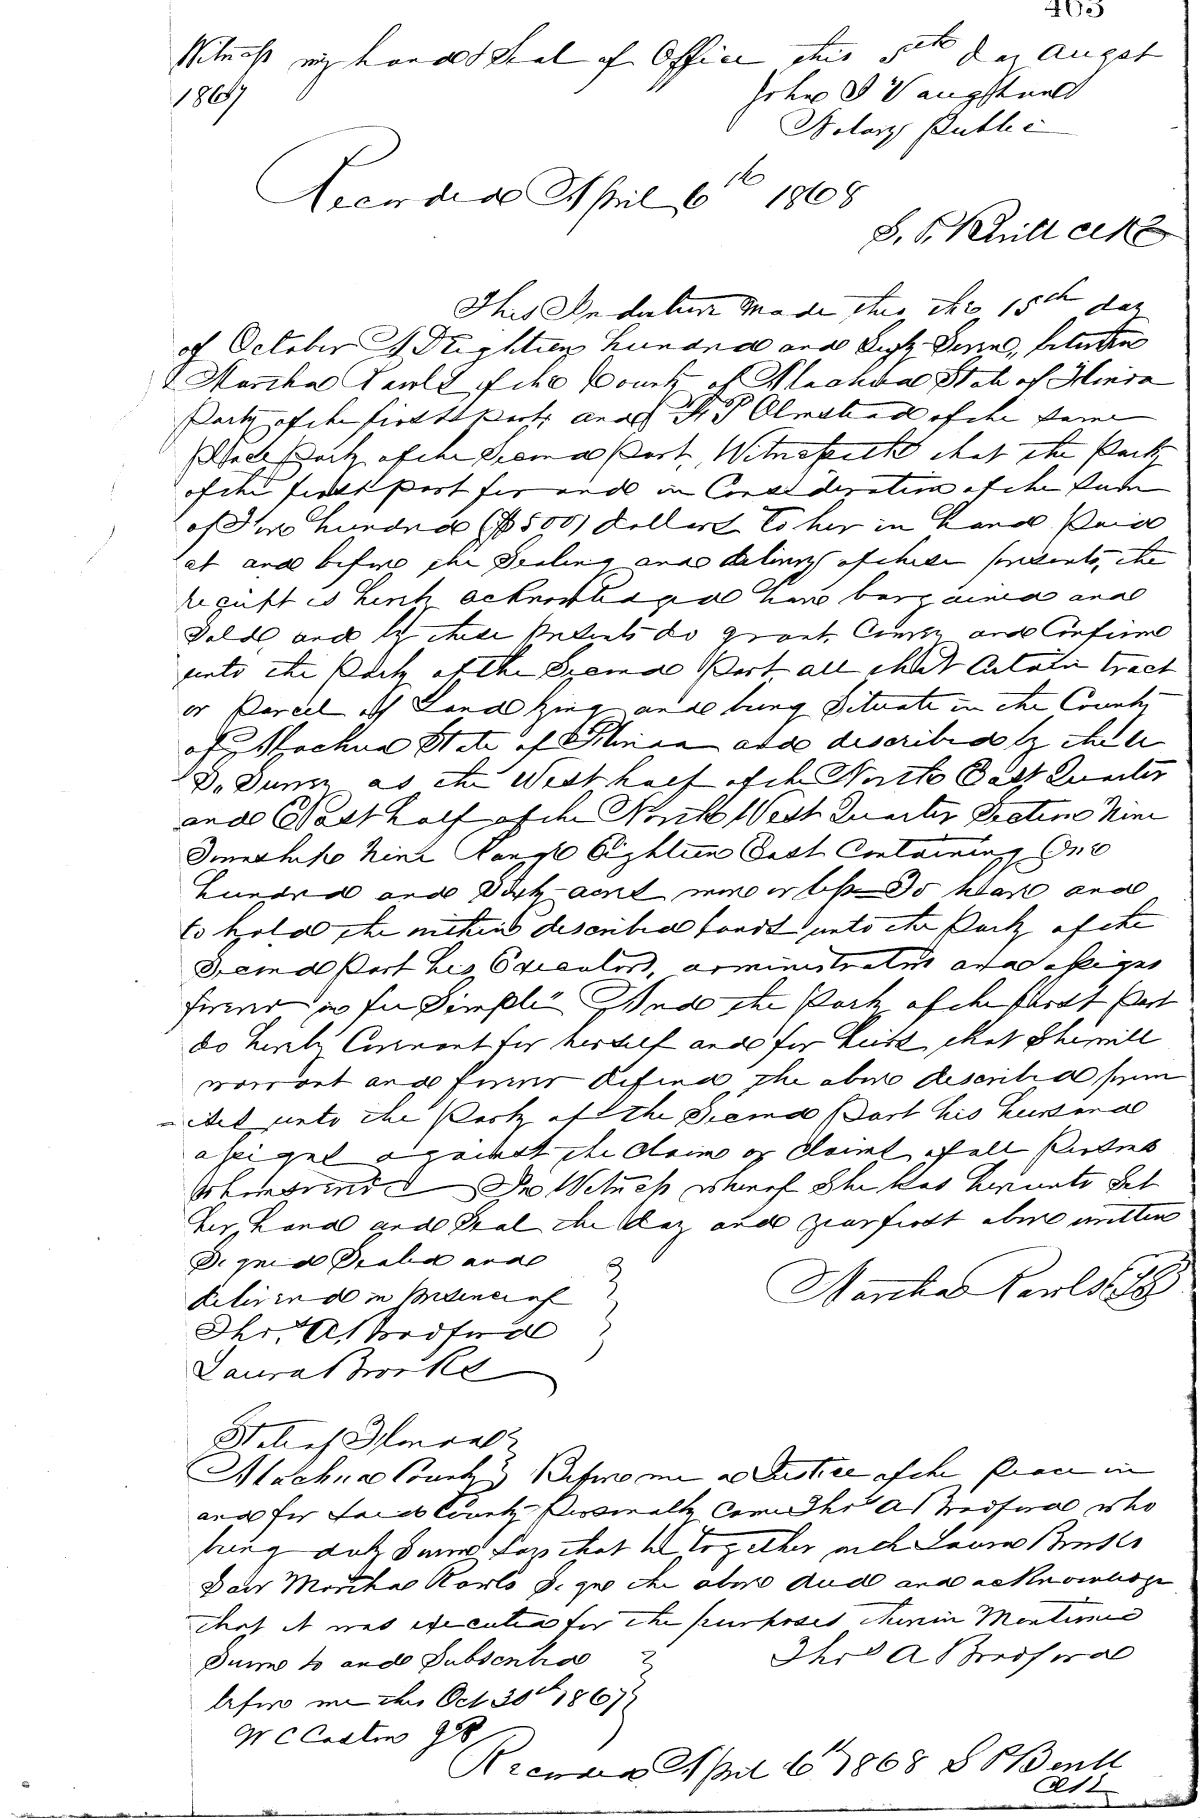 403
Witness my hand & Seal of Office this 5th day Augst
1867 John
Notary Public
Recorded April 6th 1868
S. P.
This Indenture made this the 15th day
of October A D Eighteen hundred and Sixty Seven, between
Martha Rawls of the County of Alachua State of Florida
Party of the first Part, and Olmstead of the Same
Place Party of the Second Part, Witnesseth that the Party
of the first Part for and in Consideration of the Sum
of Five hundred ($500) dollars to her in hand Paid
at and before the Sealing and delivery of these presents, the
receipt is hereby acknowledged have bargained and
Sold, and by these Presents do grant, Convey and Confirm
unto the Party of the Second Part all that Certain tract
or Parcel of Land lying and being Situate in the County
of Alachua State of Florida and described by the U
S. Survey as the West half of the North East Quarter
and East half of the North West Quarter Section Nine
Township Nine Range Eighteen East Containing One
hundred and Sixty acres more or less To have and
to hold the within described lands unto the Party of the
Second Part his Executors, administrators and assigns
forever in fee Simple And the Party of the first Part
do hereby Covenant for herself and for heirs that She will
warrant and forever defend the above described prem
-ises unto the Party of the Second Part his heirs and
assigns against the Claim or Claims of all Persons
whomsoever In Witness whereof She has hereunto Set
her hand and Seal the day and year first above written
Signed Sealed and
delivered in presence of Martha Rawls
Thos. A. Bradford
Laura Brooks
State of Florida
Alachua County Before me a Justice of the Peace in
and for Said County Personally Came Thos A Bradford who
being duly Sworn Says that he together with Laura Brooks
Saw Martha Rawls Sign the above deed and acknowledge
that it was executed for the purposes therein Mentioned
Sworn to and Subscribed Thos A Bradford
before me this Oct 30th 1867
W C JP
Recorded April 6th 1868 S P